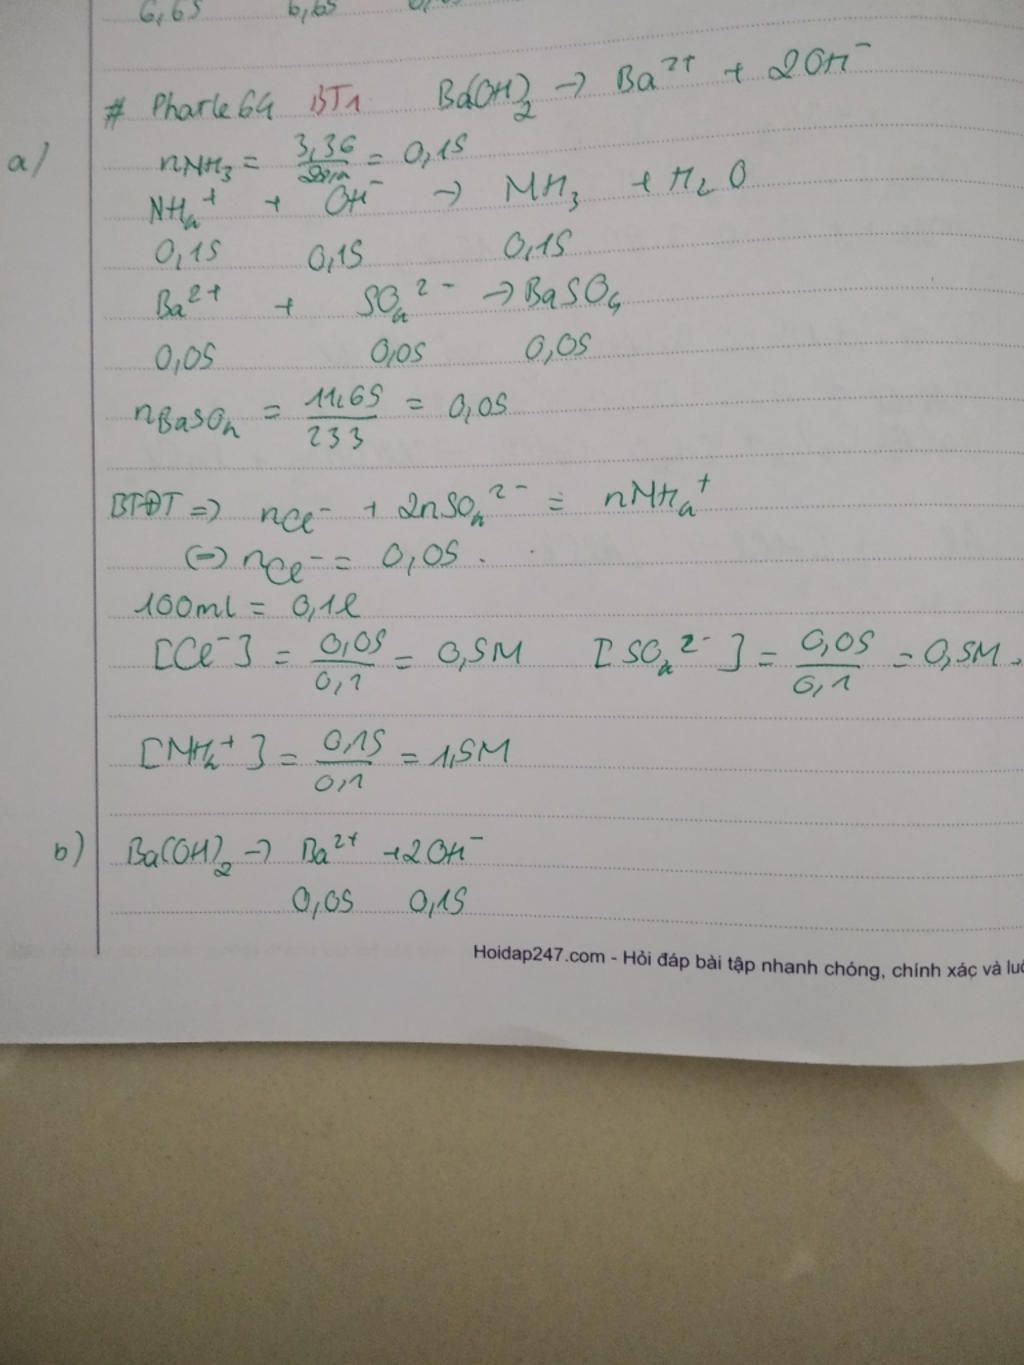 6,65 6,65
# Pharle64 BT1 Ba(OH)2 → Ba2+ + 2OH-
a) nNH3 = 3,36 / = 0,15
NH4+ + OH- → NH3 + H2O
0,15 0,15 0,15
Ba2+ + SO42- → BaSO4
0,05 0,05 0,05
nBaSO4 = 11,65/233 = 0,05
BTĐT => nCl- + 2nSO42- = nNH4+
(=) nCl- = 0,05.
100ml = 0,1l
[Cl-] = 0,05/0,1 = 0,5M [SO42-] = 0,05/0,1 = 0,5M.
[NH4+] = 0,15/0,1 = 1,5M
b) Ba(OH)2 → Ba2+ + 2OH-
0,05 0,15
Hoidap247.com - Hỏi đáp bài tập nhanh chóng, chính xác và